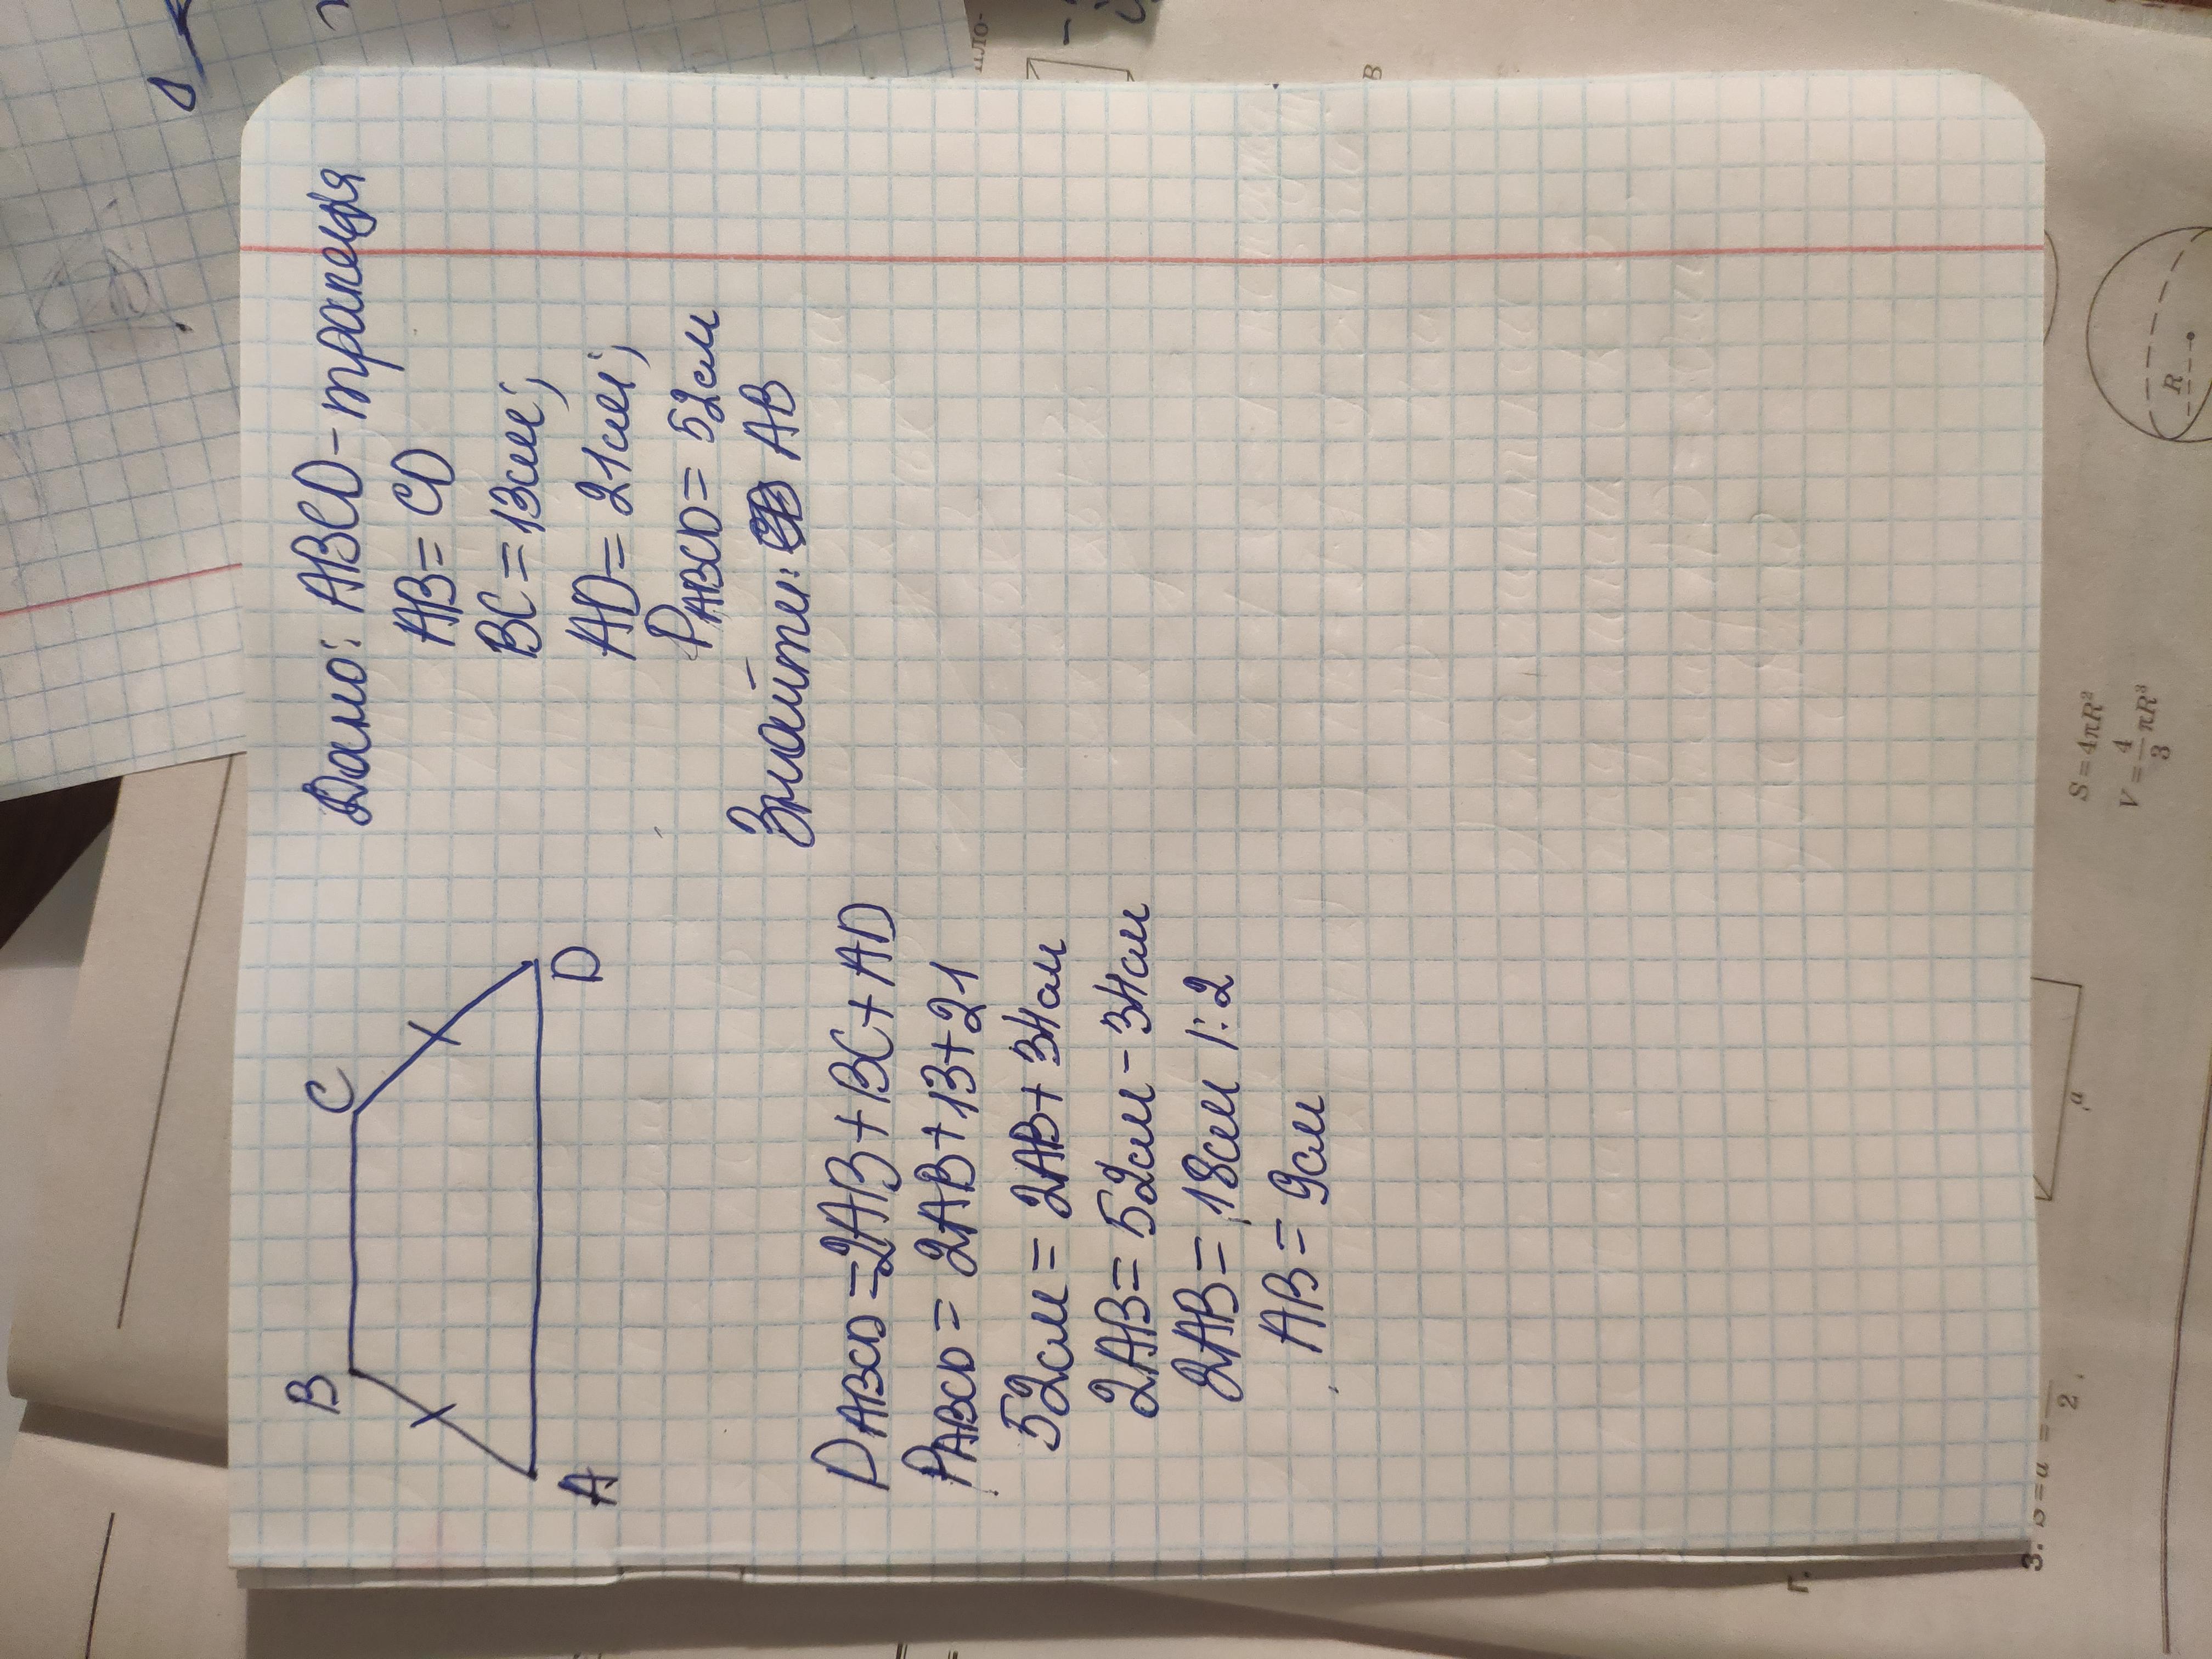 B
C
A
D
Дано: ABCD - трапеція
AB = CD
BC = 13см;
AD = 21см;
PABCD = 52см
Знайти: AB
PABCD = 2AB + BC + AD
PABCD = 2AB + 13 + 21
52см = 2AB + 34см
2AB = 52см - 34см
2AB = 18см |:2
AB = 9см
S = 4πR²
V = 4/3 πR³
R
B
a
3.
2
г.